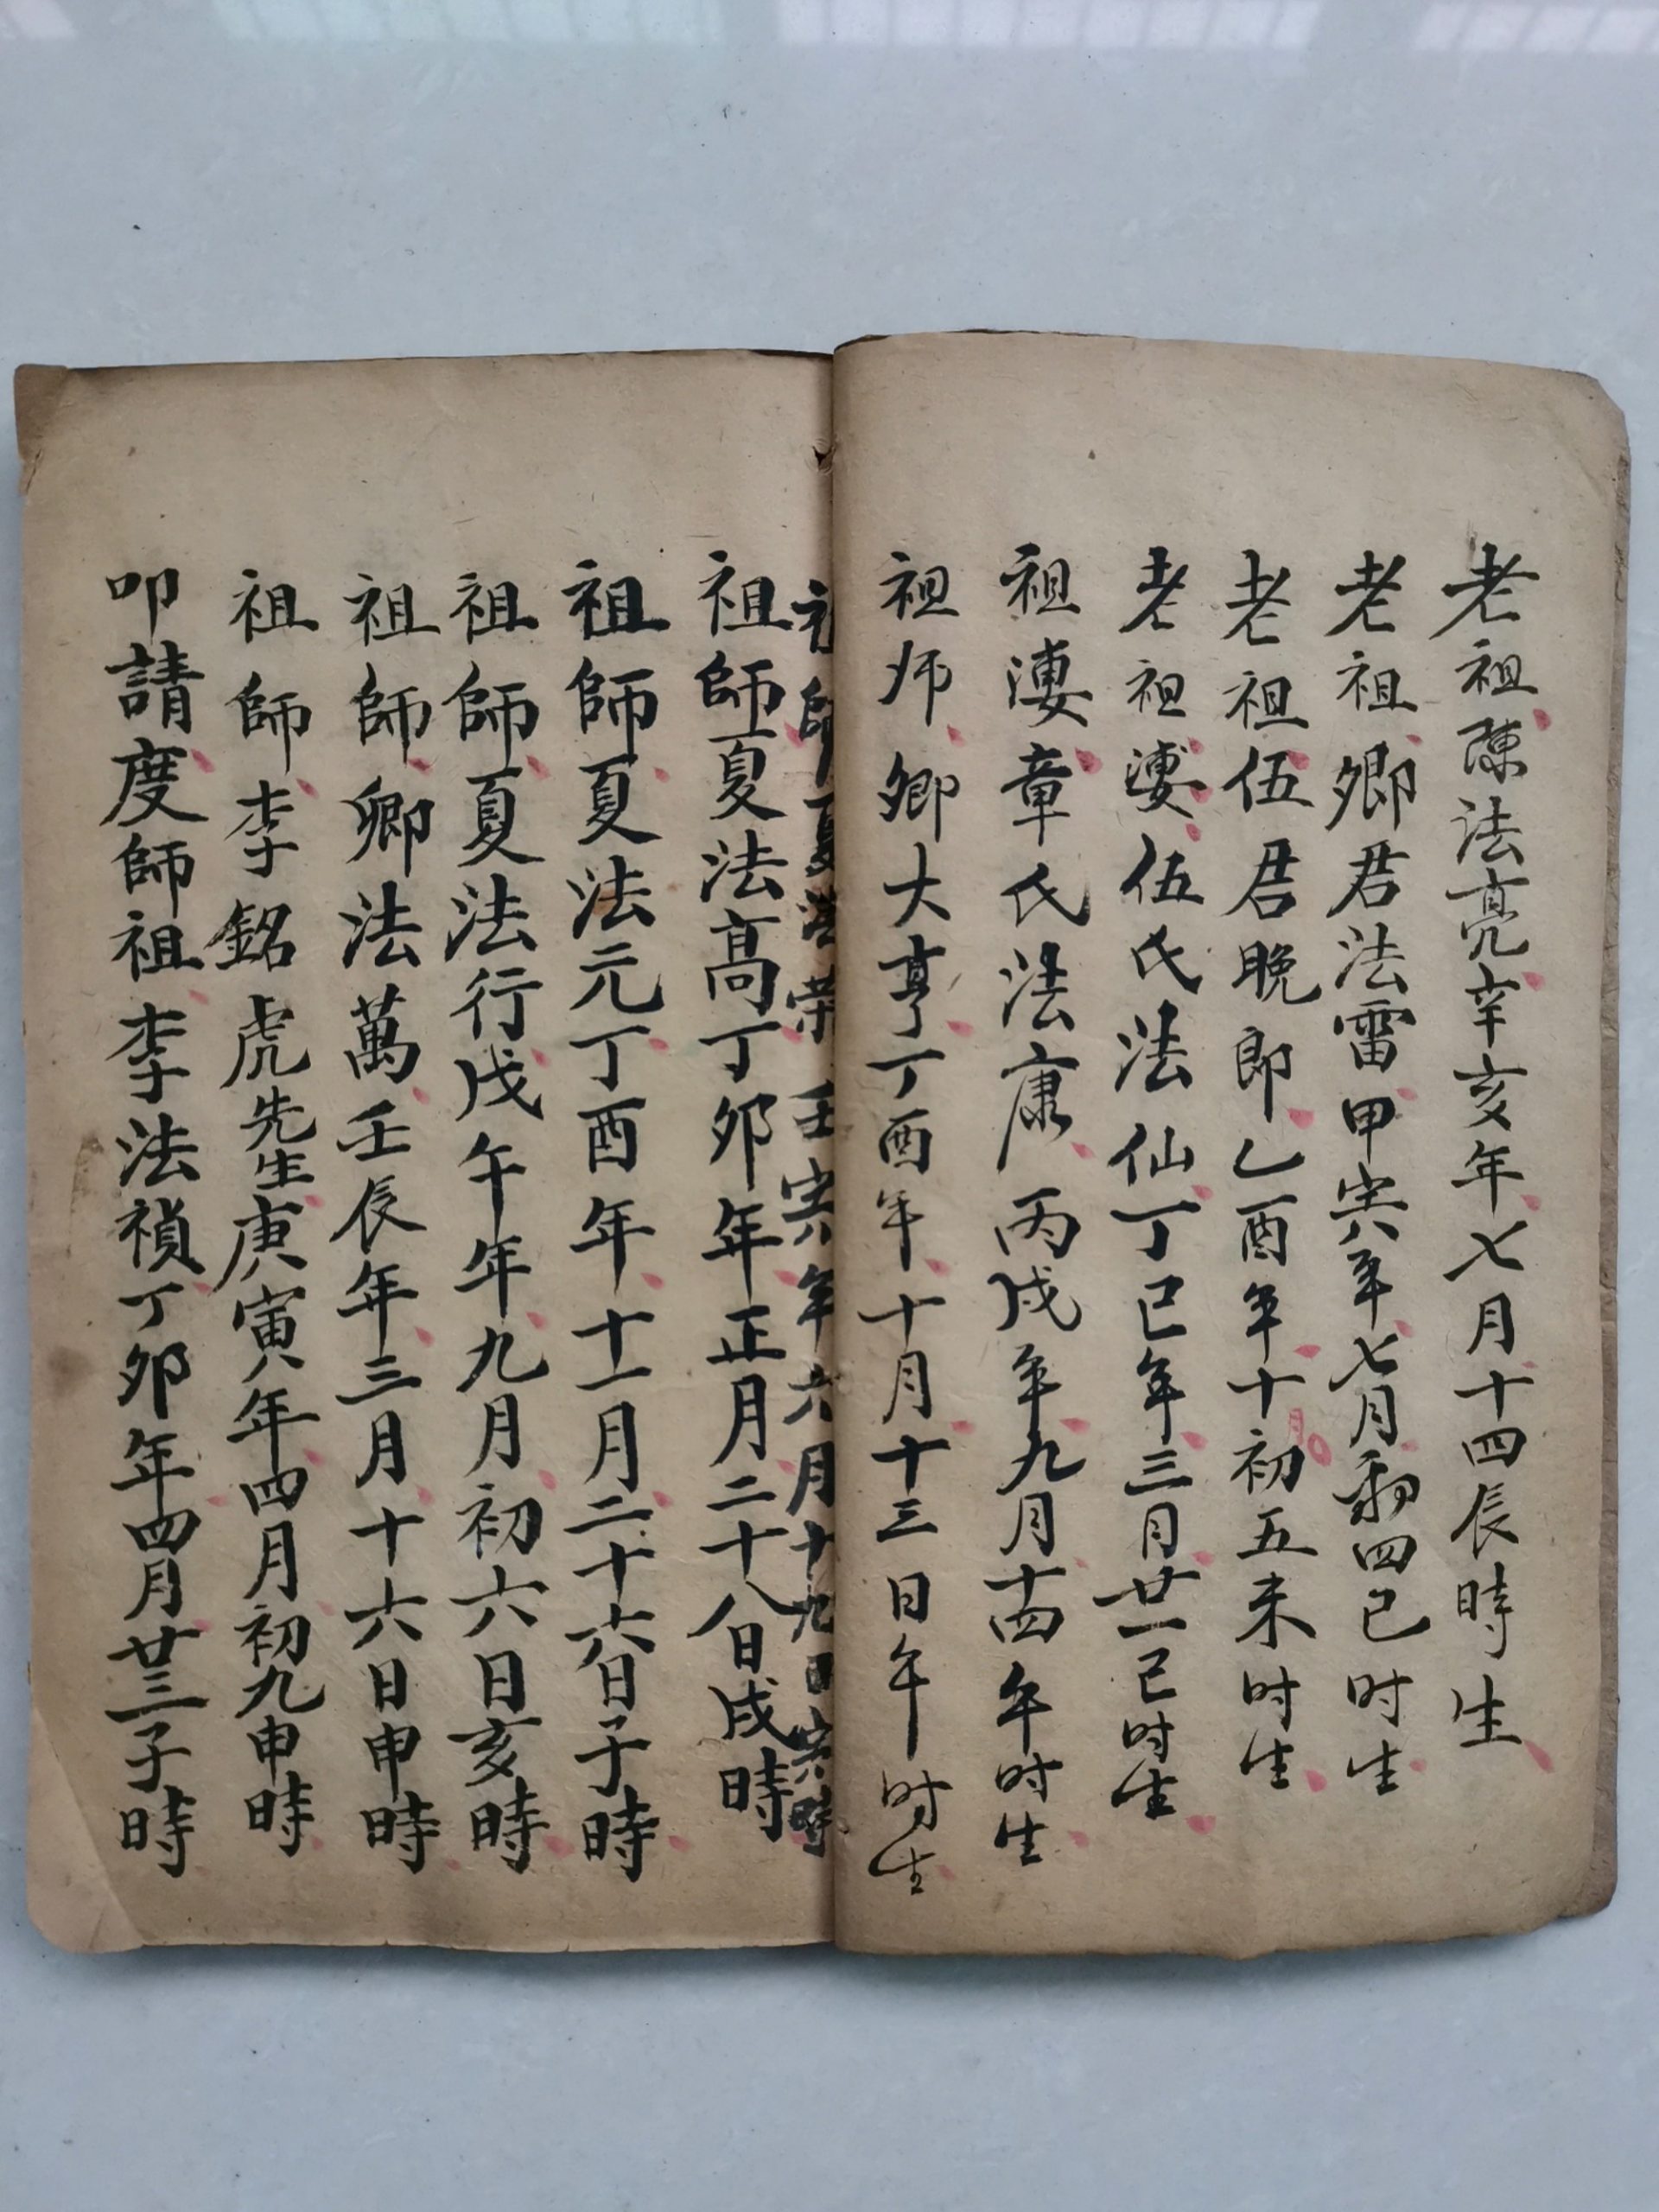 老祖陳法亮辛亥年七月十四辰時生
老祖卿君法雷甲寅年七月初四巳时生
老祖伍君晚郎乙酉年十月初五未时生
老祖婆伍氏法仙丁巳年三月廿一巳时生
祖婆章氏法康丙戌年九月十四午时生
祖师卿大亨丁酉年十月十三日午时生
祖師夏法荣壬寅年六月十九日寅時
祖師夏法高丁卯年正月二十八日戌時
祖師夏法元丁酉年十一月二十六日子時
祖師夏法行戊午年九月初六日亥時
祖師卿法萬壬辰年三月十六日申時
祖師李銘虎先生庚寅年四月初九申時
叩請度師祖李法禎丁卯年四月廿三子時